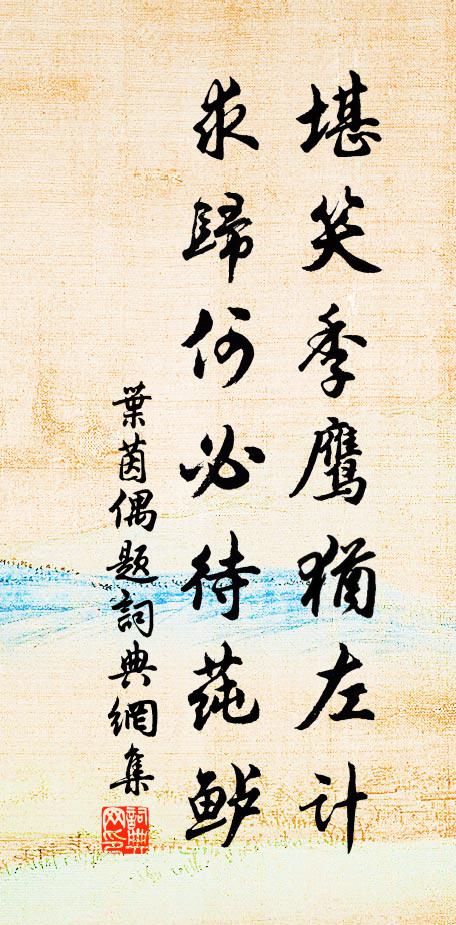 堪笑季鹰犹左计
求歸何必待莼鲈
葉茵偶题詞典網集
詞典网印